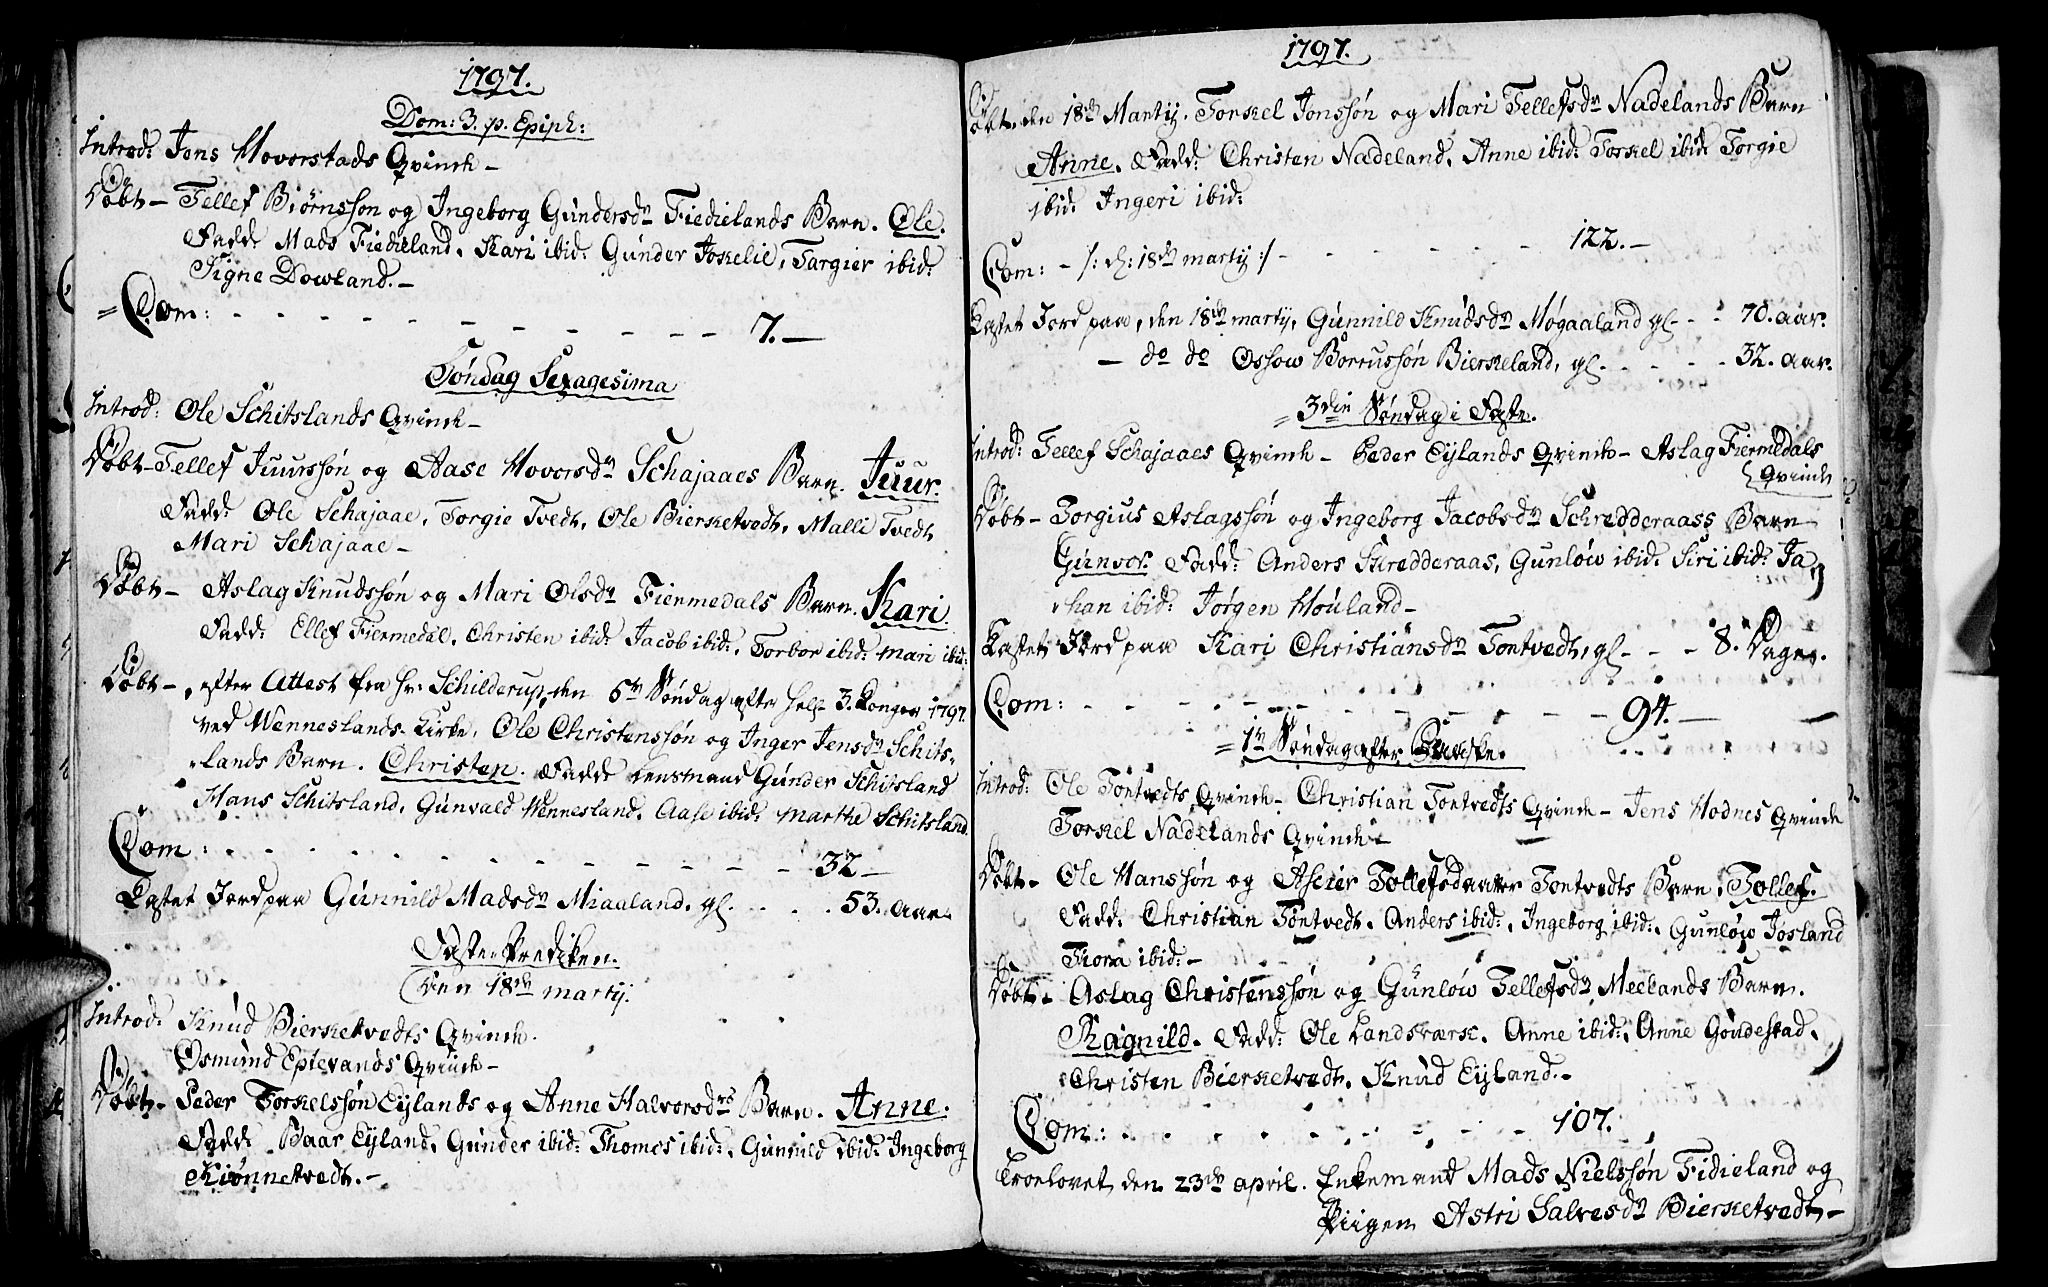 1797.
Dom: 3. p. Epiph:
Introd: Jens Hoverstads Qvinde –
Døbt – Tellef Biørnssøn og Ingeborg Gundersdr Fiedielands Barn. Ole.
Fadd: Mads Fiedieland, Kari ibid: Gunder Joskelie, Targier ibid:
Signe Dowland. –
= Com: – – – – – – – – – – – – 7. –
Søndag Sexagesima
Introd: Ole Schitslands Qvinde –
Døbt – Tellef Juurssøn og Aase Hovorsdr Schajaaes Barn. Juur.
Fadd: Ole Schajaae, Torgie Tvedt, Ole Biersketvedt, Malli Tvedt
Mari Schajaae –
Døbt – Aslag Knudssøn og Mari Olsdr Fiermedals Barn. Kari.
Fadd: Ellef Fiermedal, Christen ibid: Jacob ibid:, Torbor ibid: Mari ibid:
Døbt –, efter Attest fra Hr: Schilderup, den 5te Søndag efter Hel: 3. Konger 1797.
ved Wenneslands Kirke, Ole Christenssøn og Inger Jensdr Schits-
lands Barn. Christen. Fadd: Lensmand Gunder Schitsland
Hans Schitsland, Gunvald Wennesland, Aase ibid: Marthe Schitsland.
Com: – – – – – – – – – – – 32 –
Kastet Jord paa Gunnild Madsdr Miaaland, gl. . . . . 53. aar.
Faste-Prediken.
Den 18de martij.
Introd: Knud Biersketvedts Qvinde.
Osmund Eptevands Qvinde –
Døbt – Peder Torkelssøn Eylands og Anne Halvorsdrs Barn. Anne.
Fadd: Baar Eyland, Gunder ibid: Thomes ibid:, Gunnild ibid: Ingeborg
Kiønnetvedt. –
1797.
Døbt. den 18de Martij. Torkel Jonssøn og Mari Tellefsdr Nadelands Barn
Anne. Fadd: Christen Nadeland, Anne ibid: Torkel ibid: Torgie
ibid: Ingeri ibid:
Com: – /: d: 18de martij :/ – – – – – – 122. –
Kastet Jord paa, den 18de martij, Gunnild Knudsdr Møgaaland gl – – – 70. aar.
– do do Ossow Borrussøn Bierkeland, gl. – – – – 32. aar.
= 3die Søndag i Faste.
Introd: Tellef Schajaaes Qvinde – Peder Eylands Qvinde – Aslag Fiermedals
Qvinde
Døbt – Torgius Aslagssøn og Ingeborg Jacobsdr Schredderaass Barn
Gunvor. Fadd: Anders Skredderaas, Gunløw ibid: Siri ibid: Jo-
han ibid: Jørgen Houland –
Kastet Jord paa Kari Christiansdr Tontvedt, gl – – – 8. Dager.
Com: – – – – – – – – – – – – 94. –
= 1te Søndag efter Paaske.
Introd: Ole Tontvedts Qvinde – Christian Tontvedts Qvinde – Jens Hodnes Qvinde
Torkel Nadelands Qvinde –
Døbt – Ole Hanssøn og Ascier Tollefsdaatter Tontvedts Barn, Tollef.
Fadd: Christian Tontvedt, Anders ibid:, Ingeborg ibid:, Gunløw Josland
Tiora ibid: –
Døbt – Aslag Christenssøn og Gunløw Tellefsdr Meelands Barn.
Ragnild. Fadd: Ole Landsværk, Anne ibid:, Anne Goudestad,
Christen Biersketvedt, Knud Eyland. –
Com: . . . . . . . . . . 107.
Troelovet den 23de april. Enkemand Mads Nielssøn Fidieland og
Piigen Astri Salvesdr Biersketvedt –